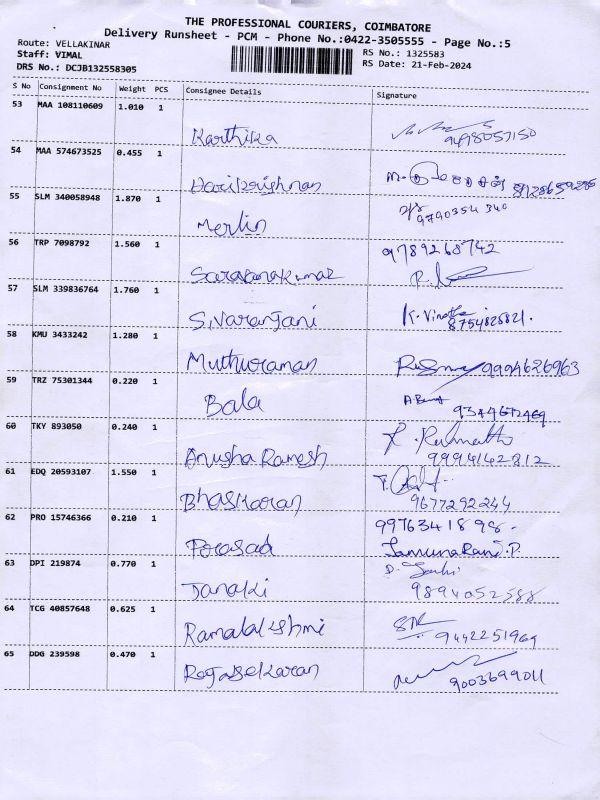 THE PROFESSIONAL COURIERS, COIMBATORE
Delivery Runsheet - PCM - Phone No.:0422-3505555 - Page No.:5
Route: VELLAKINAR
Staff: VIMAL
DRS No.: DCJB132558305
RS No.: 1325583
RS Date: 21-Feb-2024
S No Consignment No Weight PCS Consignee Details Signature
53 MAA 108110609 1.010 1
Karthika
54 MAA 574673525 0.455 1
Harikrishnan
55 SLM 340058948 1.870 1 9790354340
Merlin
56 TRP 7098792 1.560 1 9789268742
Saravanakumar
57 SLM 339836764 1.760 1
S.Naranjani K. Vinoth 8754828821.
58 KMU 3433242 1.280 1
Muthuraman 9994626963
59 TRZ 75301344 0.220 1
Bala 9344672469
60 TKY 893050 0.240 1
Anusha Ramesh 9994142812
61 EDQ 20593107 1.550 1
Bhaskaran 9677292244
62 PRO 15746366 0.210 1 9976341898.
Prasad Jamuna Rani.P.
63 DPI 219874 0.770 1
Janaki 9894052588
64 TCG 40857648 0.625 1
Ramalakshmi 9442251969
65 DDG 239598 0.470 1
Rajasekaran 9003699011